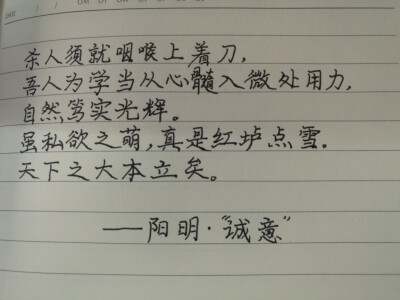 杀人须就咽喉上着刀，
吾人为学当从心髓入微处用力，
自然笃实光辉。
虽私欲之萌，真是红炉点雪。
天下之大本立矣。
——阳明·“诚意”